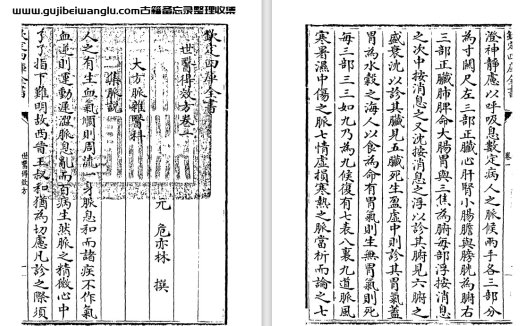 www.gujibeiwanglu.com古籍备忘录整理收集
欽定四庫全書
世醫得效方卷一
元 危亦林 撰
大方脈雜醫科
集脈說
人之有生血氣順則周流一身脈息和而諸疾不作氣
血逆則運動遲澁脈息亂而百病生然脈之精微心中
了了指下難明故西晉王叔和猶為切慮凡診之際須
欽定四庫全書
世醫得效方
欽定四庫全書
卷一
澄神靜慮以呼吸息數定病人之脈候兩手各三部分
為寸關尺左三部正臟心肝腎小腸膽與膀胱為腑右
三部正臟肺脾命大腸胃與三焦為腑每部浮按消息
之次中按消息之又沈按消息之浮以診其腑見六腑之
盛衰沈以診其臟見五臟死生盈虛中則診其胃氣蓋
胃為水穀之海人以食為命有胃氣則生無胃氣則死
每三部三三如九乃為九候復有七表八裏九道脈風
寒暑濕中傷之脈七情虛損寒熱之脈當析而論之七